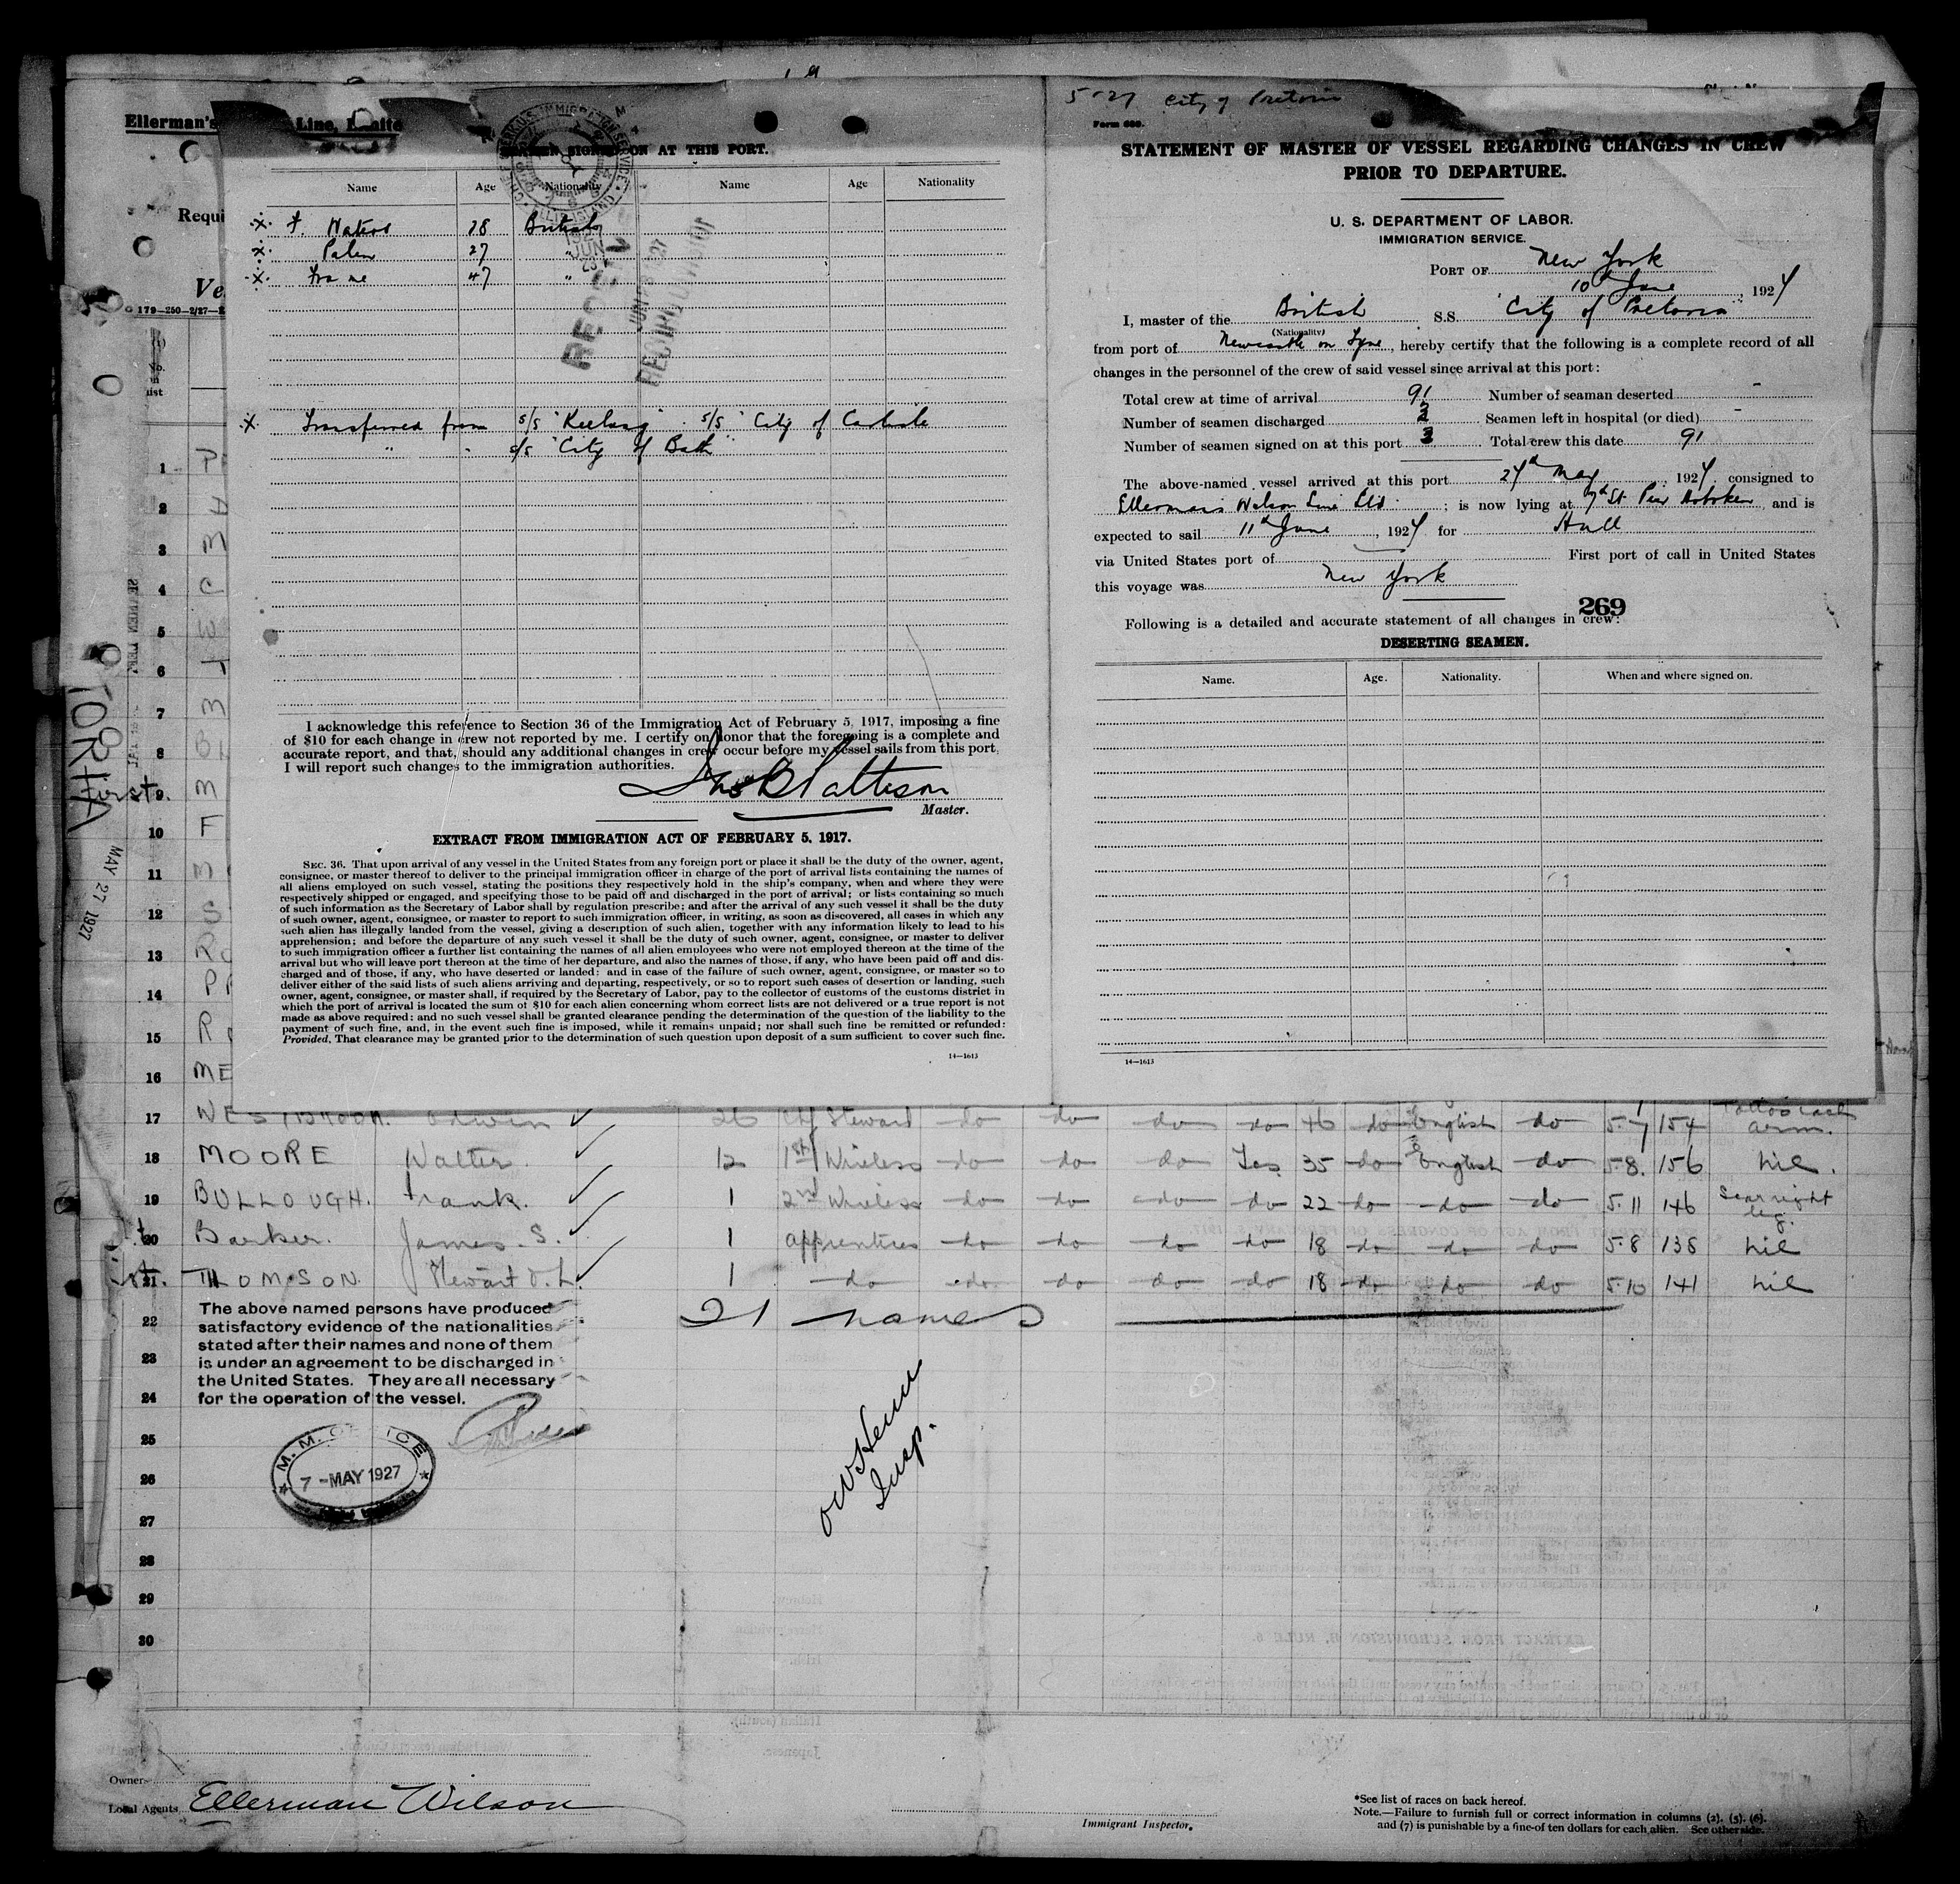 5-27 City of Pretoria
Ellerman's Line, Limite
SEAMEN SIGNED ON AT THIS PORT.
Name Age Nationality Name Age Nationality
x F. Waters 28 British
x Palin 27 "
x 47 "
x Transferred from s/s "Keelung" s/s "City of Carlisle"
" " s/s "City of Bath"
I acknowledge this reference to Section 36 of the Immigration Act of February 5, 1917, imposing a fine
of $10 for each change in crew not reported by me. I certify on honor that the foregoing is a complete and
accurate report, and that, should any additional changes in crew occur before my vessel sails from this port,
I will report such changes to the immigration authorities.
Jno B Pattison
Master.
EXTRACT FROM IMMIGRATION ACT OF FEBRUARY 5, 1917.
SEC. 36. That upon arrival of any vessel in the United States from any foreign port or place it shall be the duty of the owner, agent,
consignee, or master thereof to deliver to the principal immigration officer in charge of the port of arrival lists containing the names of
all aliens employed on such vessel, stating the positions they respectively hold in the ship's company, when and where they were
respectively shipped or engaged, and specifying those to be paid off and discharged in the port of arrival; or lists containing so much
of such information as the Secretary of Labor shall by regulation prescribe; and after the arrival of any such vessel it shall be the duty
of such owner, agent, consignee, or master to report to such immigration officer, in writing, as soon as discovered, all cases in which any
such alien has illegally landed from the vessel, giving a description of such alien, together with any information likely to lead to his
apprehension; and before the departure of any such vessel it shall be the duty of such owner, agent, consignee, or master to deliver
to such immigration officer a further list containing the names of all alien employees who were not employed thereon at the time of the
arrival but who will leave port thereon at the time of her departure, and also the names of those, if any, who have been paid off and dis-
charged and of those, if any, who have deserted or landed: and in case of the failure of such owner, agent, consignee, or master so to
deliver either of the said lists of such aliens arriving and departing, respectively, or so to report such cases of desertion or landing, such
owner, agent, consignee, or master shall, if required by the Secretary of Labor, pay to the collector of customs of the customs district in
which the port of arrival is located the sum of $10 for each alien concerning whom correct lists are not delivered or a true report is not
made as above required; and no such vessel shall be granted clearance pending the determination of the question of the liability to the
payment of such fine, and, in the event such fine is imposed, while it remains unpaid; nor shall such fine be remitted or refunded:
Provided, That clearance may be granted prior to the determination of such question upon deposit of a sum sufficient to cover such fine.
14—1613
Form 680.
STATEMENT OF MASTER OF VESSEL REGARDING CHANGES IN CREW
PRIOR TO DEPARTURE.
U. S. DEPARTMENT OF LABOR.
IMMIGRATION SERVICE.
PORT OF New York
10th June, 1927
I, master of the British S.S. "City of Pretoria"
(Nationality)
from port of Newcastle on Tyne, hereby certify that the following is a complete record of all
changes in the personnel of the crew of said vessel since arrival at this port:
Total crew at time of arrival 91 Number of seaman deserted -
Number of seamen discharged 3 Seamen left in hospital (or died) -
Number of seamen signed on at this port 3 Total crew this date 91
The above-named vessel arrived at this port 27th May, 1927, consigned to
Ellermans Wilson Line Ltd; is now lying at 7th St. Pier Hoboken, and is
expected to sail 11th June, 1927 for Hull
via United States port of First port of call in United States
this voyage was New York
269
Following is a detailed and accurate statement of all changes in crew:
DESERTING SEAMEN.
Name. Age. Nationality. When and where signed on.
14—1613
Requi
Ve
179—250—2/27—
MAY 27 1927
1
2
3
4
5
6
7
8
9
10
11
12
13
14
15
16
17 WESTBROOK. Edwin 26 Steward do do do do 46 do English do 5-7 154 Tattoo each arm.
18 MOORE Walter 12 1st Wireless do do do Yes 35 do English do 5-8. 156 nil.
19 BULLOUGH. Frank. 1 2nd Wireless do do do do 22 do do do 5-11 146 Scar right leg.
20 Barker. James. S. 1 apprentices do do do do 18 do do do 5-8 138 nil
21 THOMPSON. Stewart 1 do do do do do 18 do do do 5-10 141 nil
22 21 names
The above named persons have produced
satisfactory evidence of the nationalities
stated after their names and none of them
is under an agreement to be discharged in
the United States. They are all necessary
for the operation of the vessel.
23
24
25
26
27
28
29
30
M. M. OFFICE
7 - MAY 1927
Insp.
Owner
Local Agents Ellerman Wilson
Immigrant Inspector.
*See list of races on back hereof.
Note.—Failure to furnish full or correct information in columns (2), (5), (6),
and (7) is punishable by a fine of ten dollars for each alien. See other side.